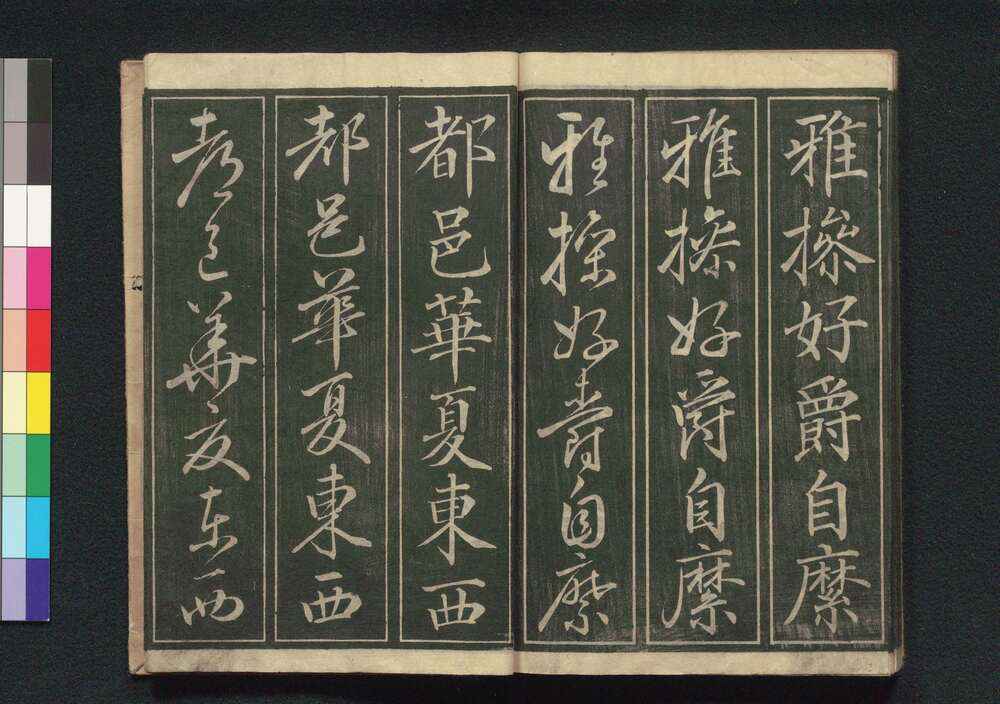 雅操好爵自縻
雅操好爵自縻
雅操好爵自縻
都邑華夏東西
都邑華夏東西
都邑華夏東西